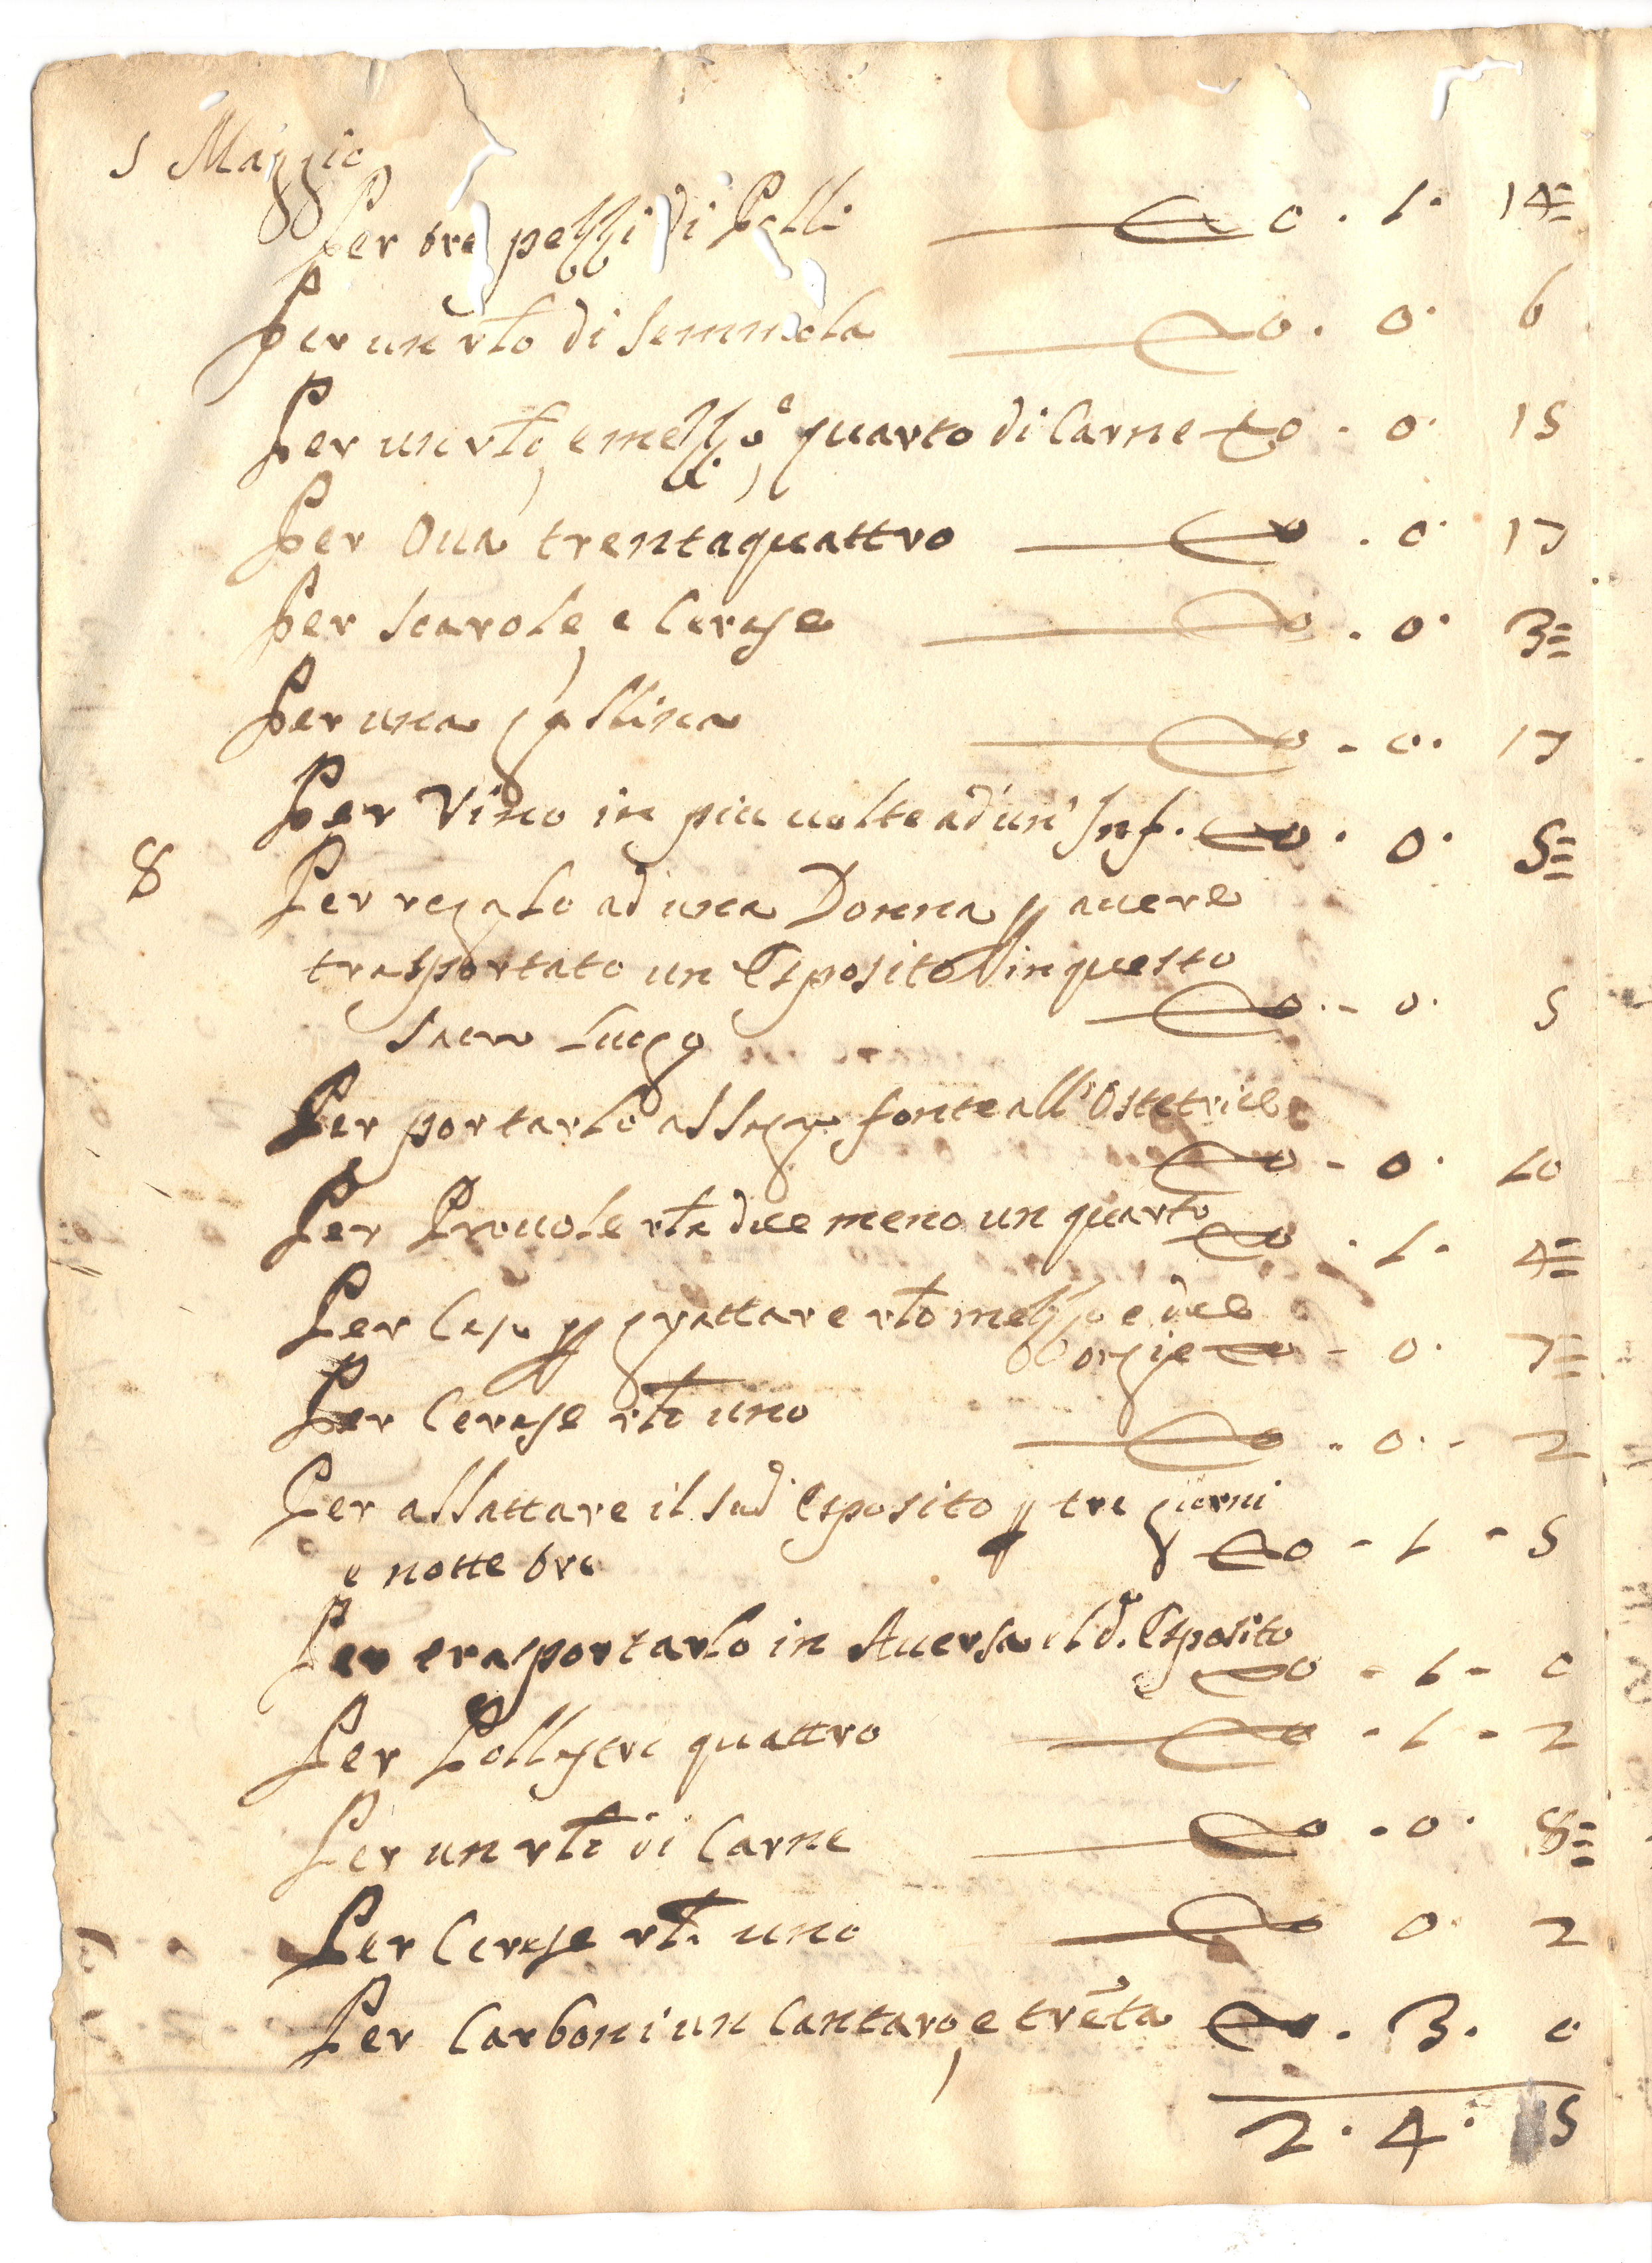 5 Maggio
Per tre pezzi di Polli 0 . 1 . 14=
Per un rt̄o di Semmola 0 . 0 . 6
Per un rt̄o, e mezzo quarto di Carne 0 - 0 . 15
Per Oua trentaquattro 0 . 0 . 17
Per scarole, e Cerase 0 . 0 . 3=
Per una gallina 0 - 0 . 17
Per Vino in piu uolte ad un' Inf. 0 . 0 . 5=
8 Per regalo ad una Donna p auere
trasportato un Esposito in questo
Sacro Luogo 0 - 0 . 5
Per portarlo al Sagro fonte all'Ostetrice
0 - 0 . 10
Per Prouole rt̄a due meno un quarto 0 . 1 . 4=
Per Caso p grattare rt̄o mezzo e due
orgie 0 - 0 . 7=
Per Cerase rt̄o uno 0 - 0 . - 2
Per allattare il sud.o Esposito p tre giorni
e notte tre 0 - 1 - 5
Per trasportarlo in Auersa il d.o Esposito
0 - 1 - 0
Per Pollastri quattro 0 - 1 - 2
Per un rt̄o di Carne 0 . 0 . 8=
Per Cerase rt̄o uno 0 0 . 2
Per Carboni un Cantaro, e trēta 0 . 3 . 0
2 . 4 . 15